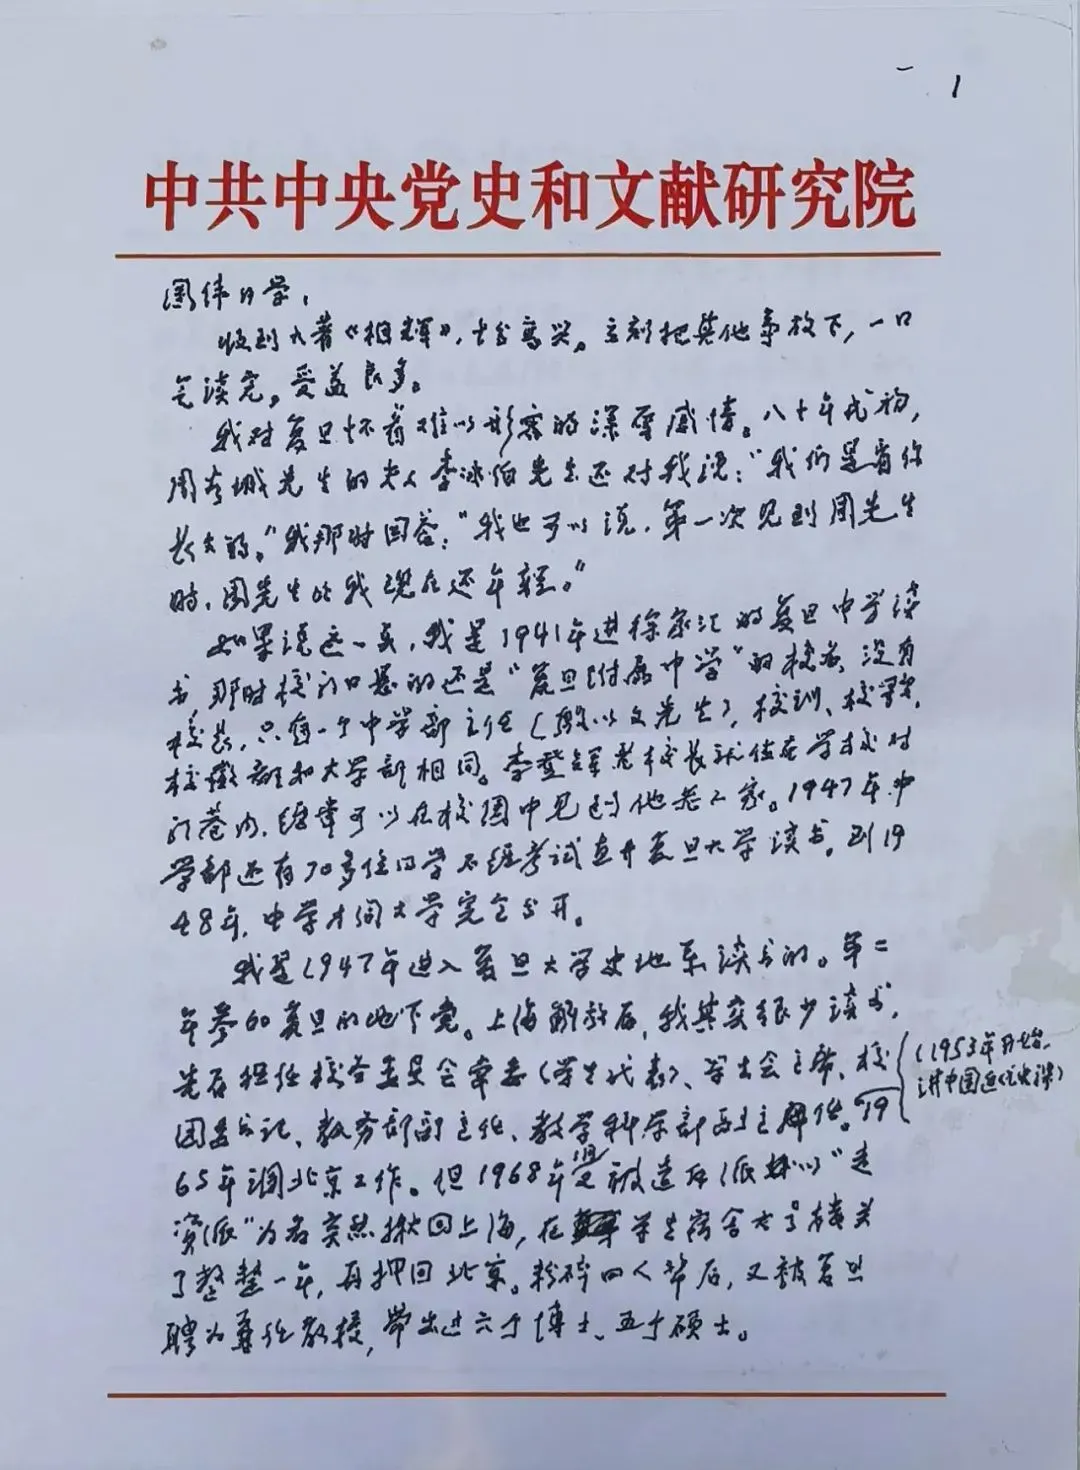 1
中共中央党史和文献研究院
周伟同学，
收到大著《相辉》，十分高兴。立刻把其他事放下，一口
气读完。受益良多。
我对复旦怀着难以形容的深厚感情。八十年代初，
周谷城先生的夫人李冰伯先生还对我说：“我们是看你
长大的。”我那时回答：“我也可以说，第一次见到周先生
时，周先生比我现在还年轻。”
如果说远一点，我是1941年进徐家汇的复旦中学读
书，那时校门口悬的还是“复旦附属中学”的校名，没有
校长，只有一个中学部主任（殷以文先生），校训、校歌，
校徽都和大学部相同。李登辉老校长就住在学校对
门巷内，经常可以在校园中见到他老人家。1947年中
学部还有70多位同学不经考试直升复旦大学读书。到19
48年，中学才同大学完全分开。
我是1947年进入复旦大学史地系读书的。第二
年参加复旦的地下党。上海解放后，我其实很少读书，
先后担任校务委员会常委（学生代表）、学生会主席、校
团委书记、教务部副主任、教学科学部副主任。19
（1953年开始，
讲中国近代史课）
65年调北京工作。但1968年被造反派以“走
资派”为名突然揪回上海，在学生宿舍六号楼关
了整整一年，再押回北京。粉碎四人帮后，又被复旦
聘为兼任教授，带出过六个博士、五个硕士。